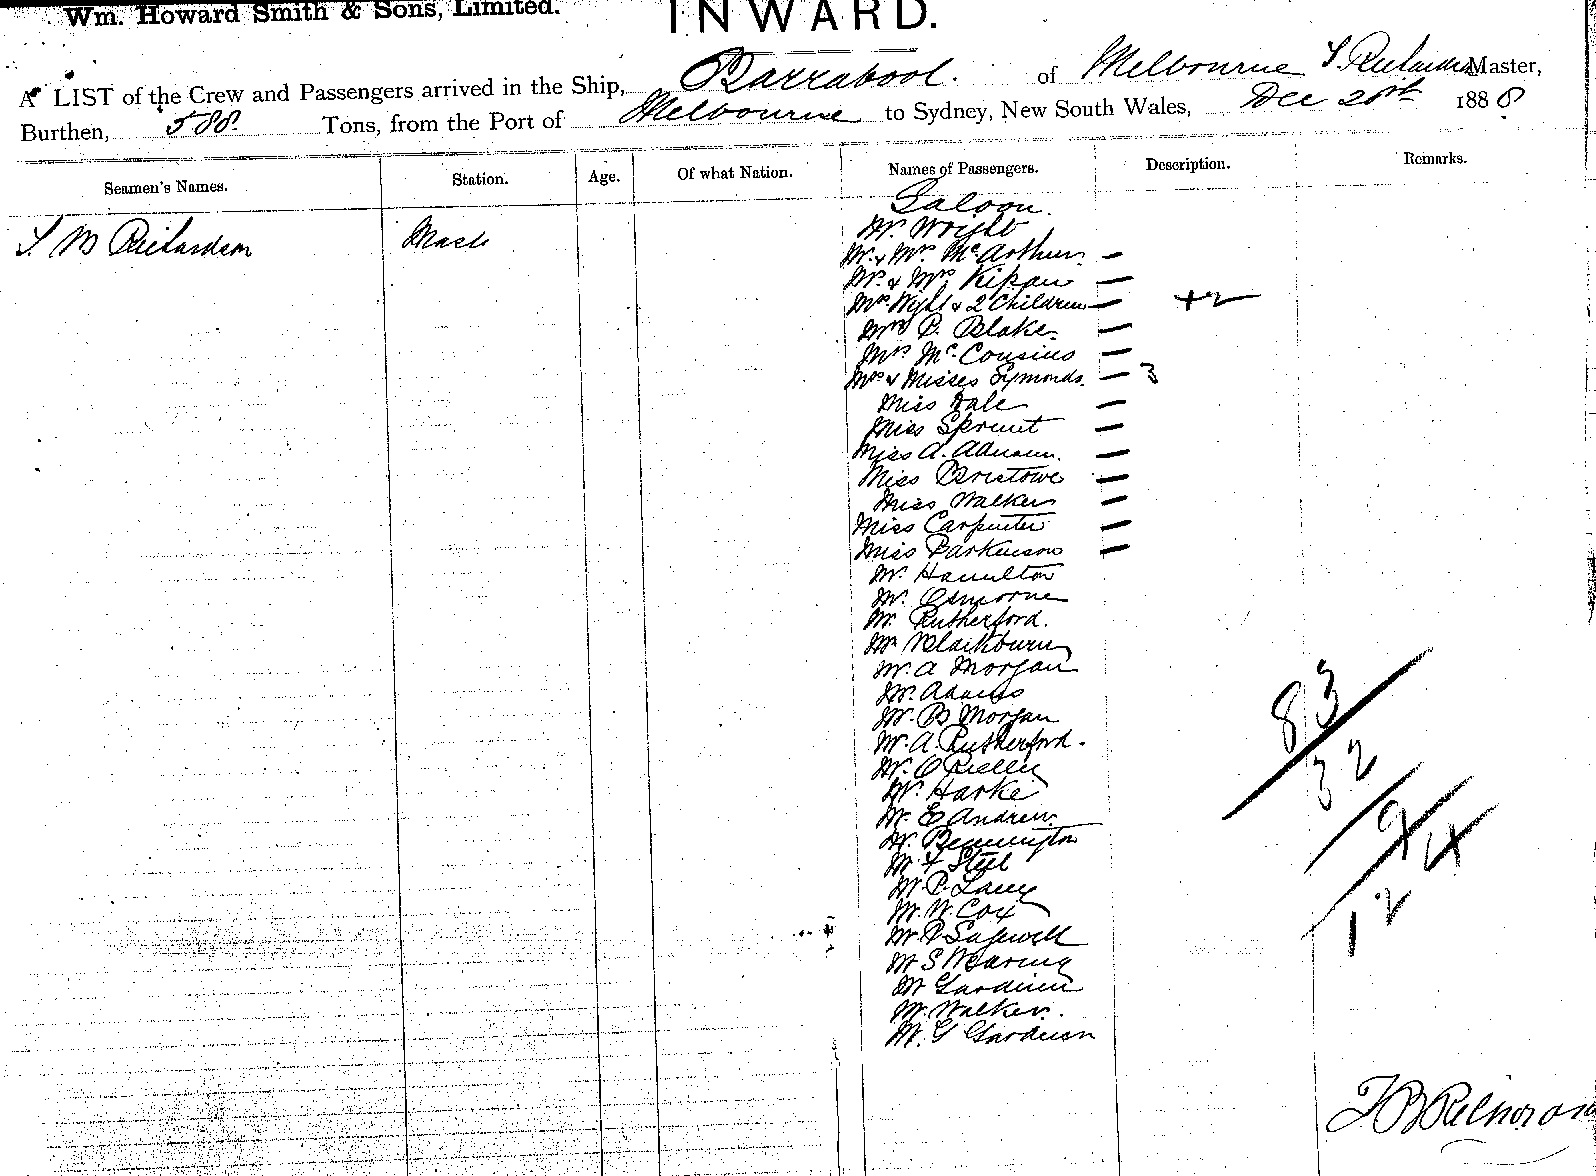 Wm. Howard Smith & Sons, Limited.
INWARD.
A LIST of the Crew and Passengers arrived in the Ship, Barrabool. of Melbourne Master,
Burthen, 588 Tons, from the Port of Melbourne to Sydney, New South Wales, Dec 20th 1888
Seamen's Names. Station. Age. Of what Nation. Names of Passengers. Description. Remarks.
Saloon.
S. M Richardson Mr. Wright
Mr. & Mrs. McArthur
Mr. & Mrs
Mrs. Wight & 2 Children +2
Mrs P. Blake
Mrs Mc. Cousins
Mrs & Misses Symonds. 3
Miss Dale
Miss Sprunt
Miss A. Adamson
Miss Bristowe
Miss Walker
Miss Carpenter
Miss Parkinson
Mr. Hamilton
Mr. Osmorne
Mr. Rutherford.
Mr Blackburn
Mr. A Morgan
Mr. Adams
Mr. B Morgan
Mr. A. Rutherford.
Mr. O Rielly
Mr. Harke
Mr. E Andrew
Mr. Bennington
Mr Steel
Mr. P. Lacey
Mr. W. Cox
Mr. P
Mr S Waring
Mr Gardiner
Mr. Walker.
Mr. G Gardiner
83
32
12